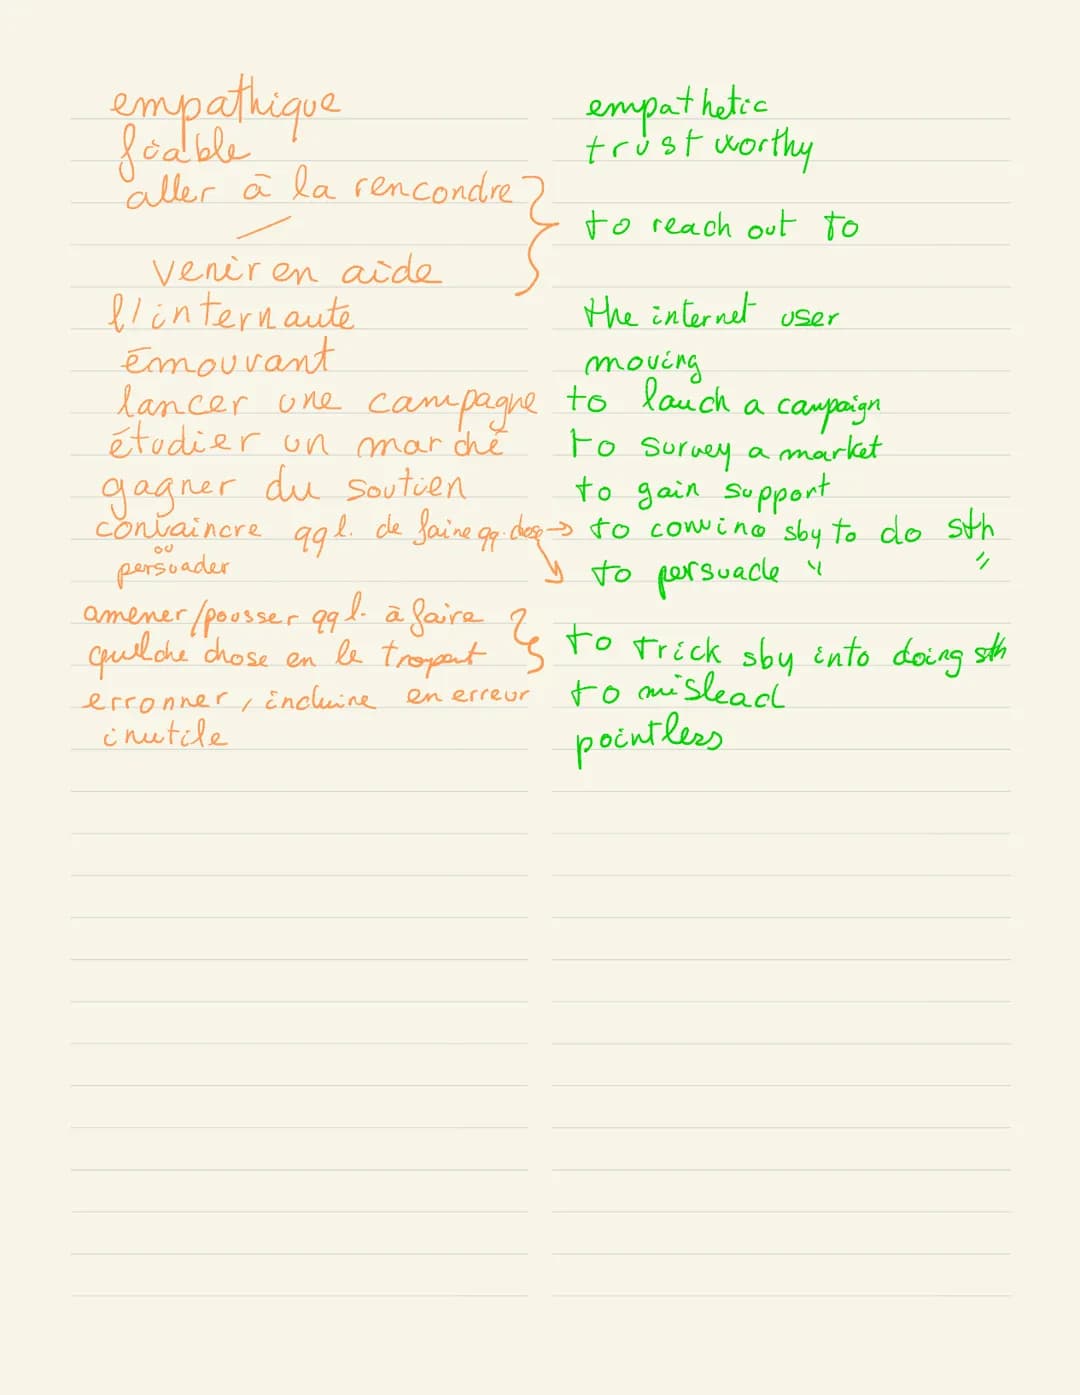 empathique
empathetic
fiable
trustworthy
aller à la rencondre
/
to reach out to
venir en aide
l'internaute
the internet user
émouvant
moving
lancer une campagne
to lauch a campaign
étudier un marché
to survey a market
gagner du soutien
to gain support
convaincre qql. de faire qq. chose → to convince sby to do sth
ou
persuader
to persuade " "
amener/pousser qql. à faire
quelche chose en le tropent
to trick sby into doing sth
erronner, incluine en erreur
to mislead
inutile
pointless